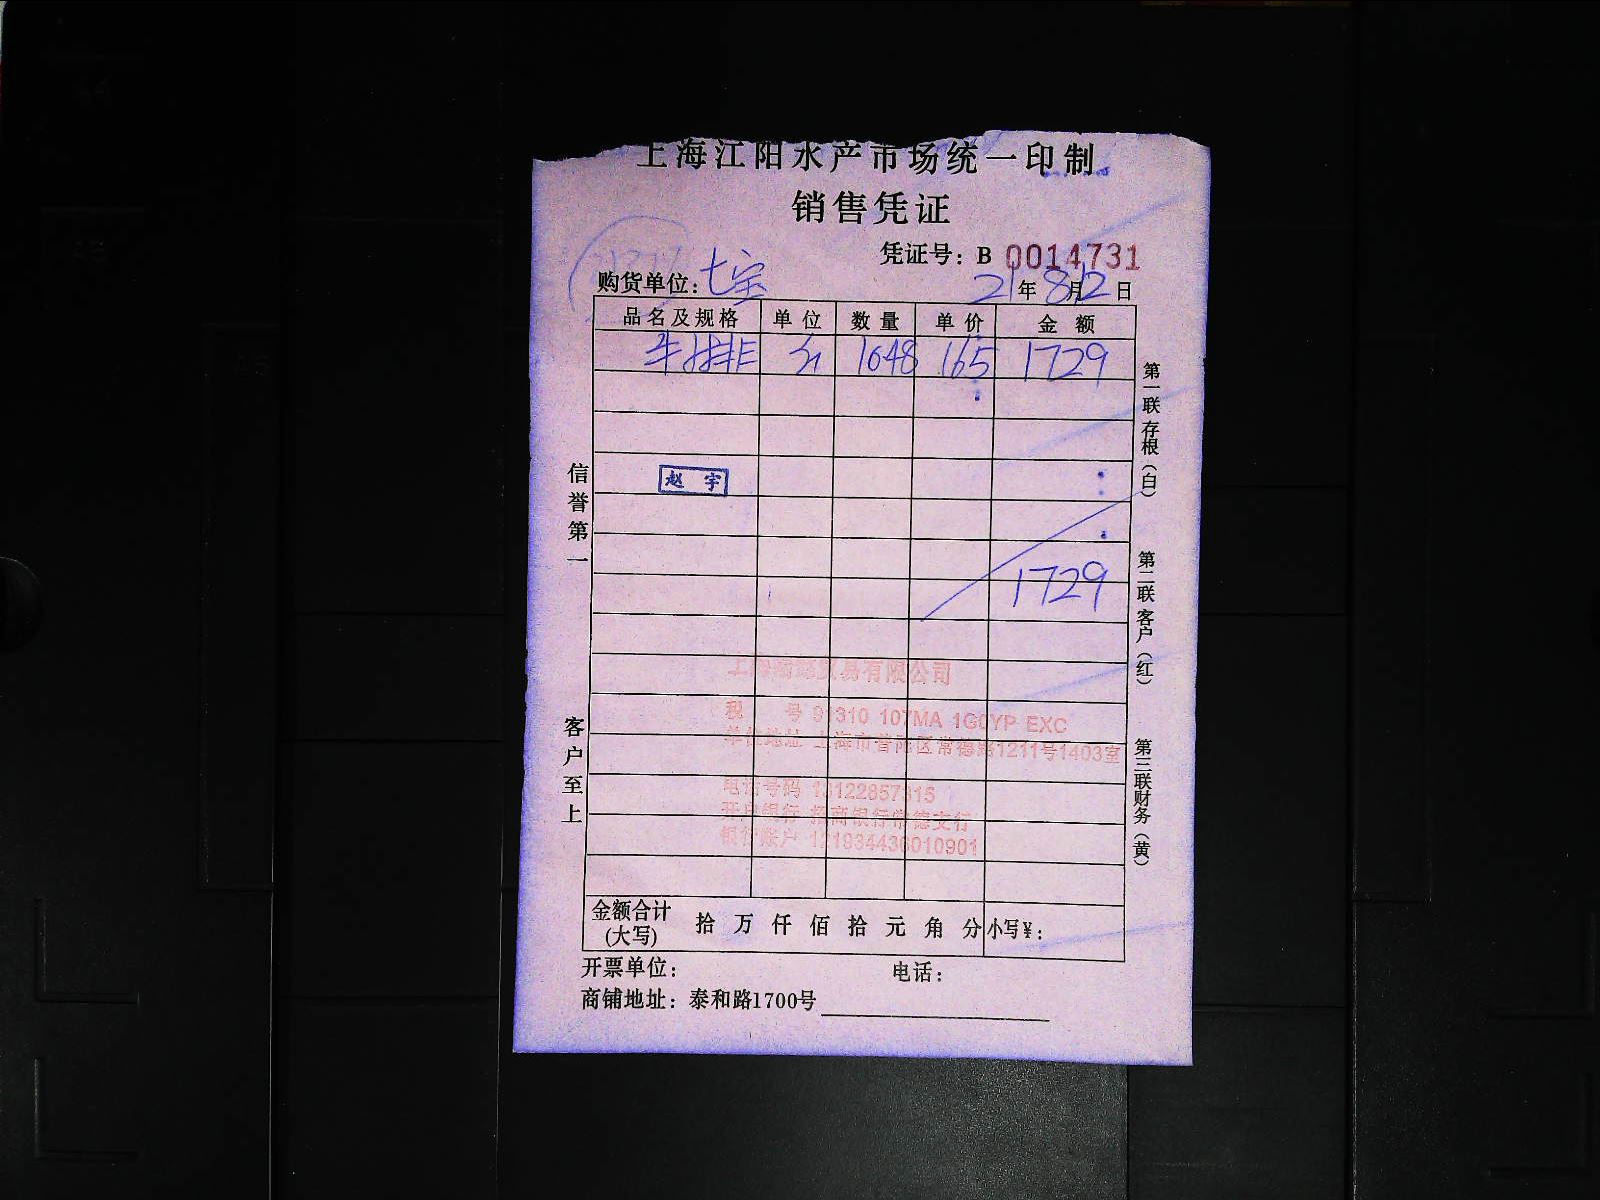 上海江阳水产市场统一印制
销售凭证
凭证号：B 0014731
购货单位：七宝 21年8月12日
品名及规格 单位 数量 单价 金额
1048 165 1729
赵宇
1729
贸易有限公司
税 号 91310 107MA 1G0YP EXC
单位地址 上海市普陀区常德路1211号1403室
电话号码 13122857315
开户银行 招商银行常德支行
银行账户 121934436010901
金额合计(大写) 拾 万 仟 佰 拾 元 角 分 小写¥：
开票单位： 电话：
商铺地址：泰和路1700号
信誉第一
客户至上
第一联 存根（白）
第二联 客户（红）
第三联 财务（黄）